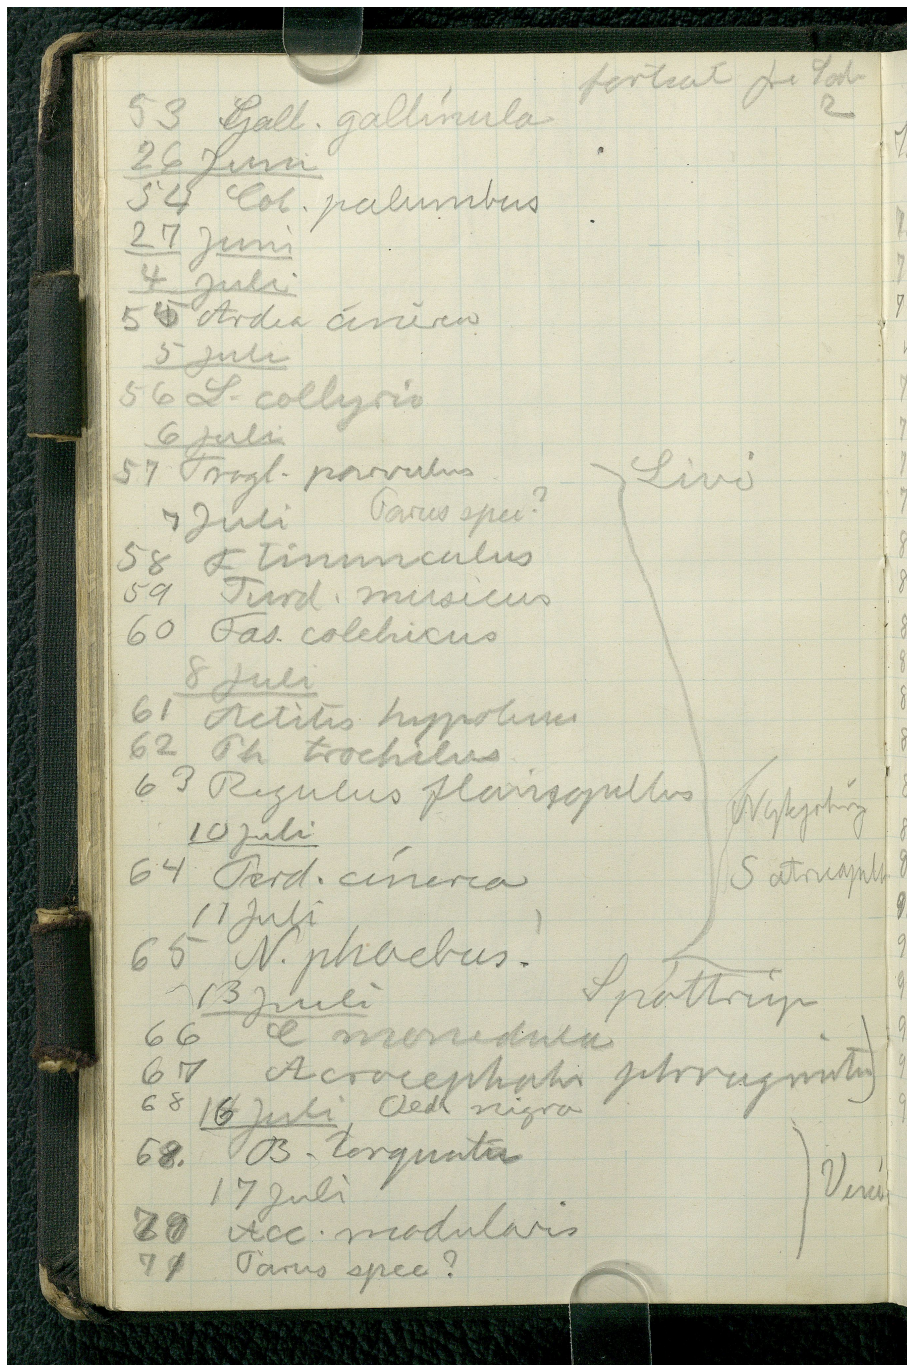 53 Gall. gallinula
2
26 Juni
54 Col. palumbus
27 Juni
4 Juli
55 Ardea cinerea
5 Juli
56 L. collyrio
6 Juli
57 Trogl. parvulus
Livö
7 Juli Parus spec?
58 F tinnunculus
59 Turd. musicus
60 Fas. colchicus
8 Juli
61 Actitis hypoleucus
62 Ph trochilus
63 Regulus flavicapillus
10 Juli
64 Perd. cinerea
S atricapilla
11 Juli
65 N. phaebus!
13 Juli
Spøttrup
66 C monedula
67 Acrocephalus phragmitis
68 16 Juli, Oed. nigra
69. B. torquata
17 Juli
70 Acc. modularis
71 Parus spec?